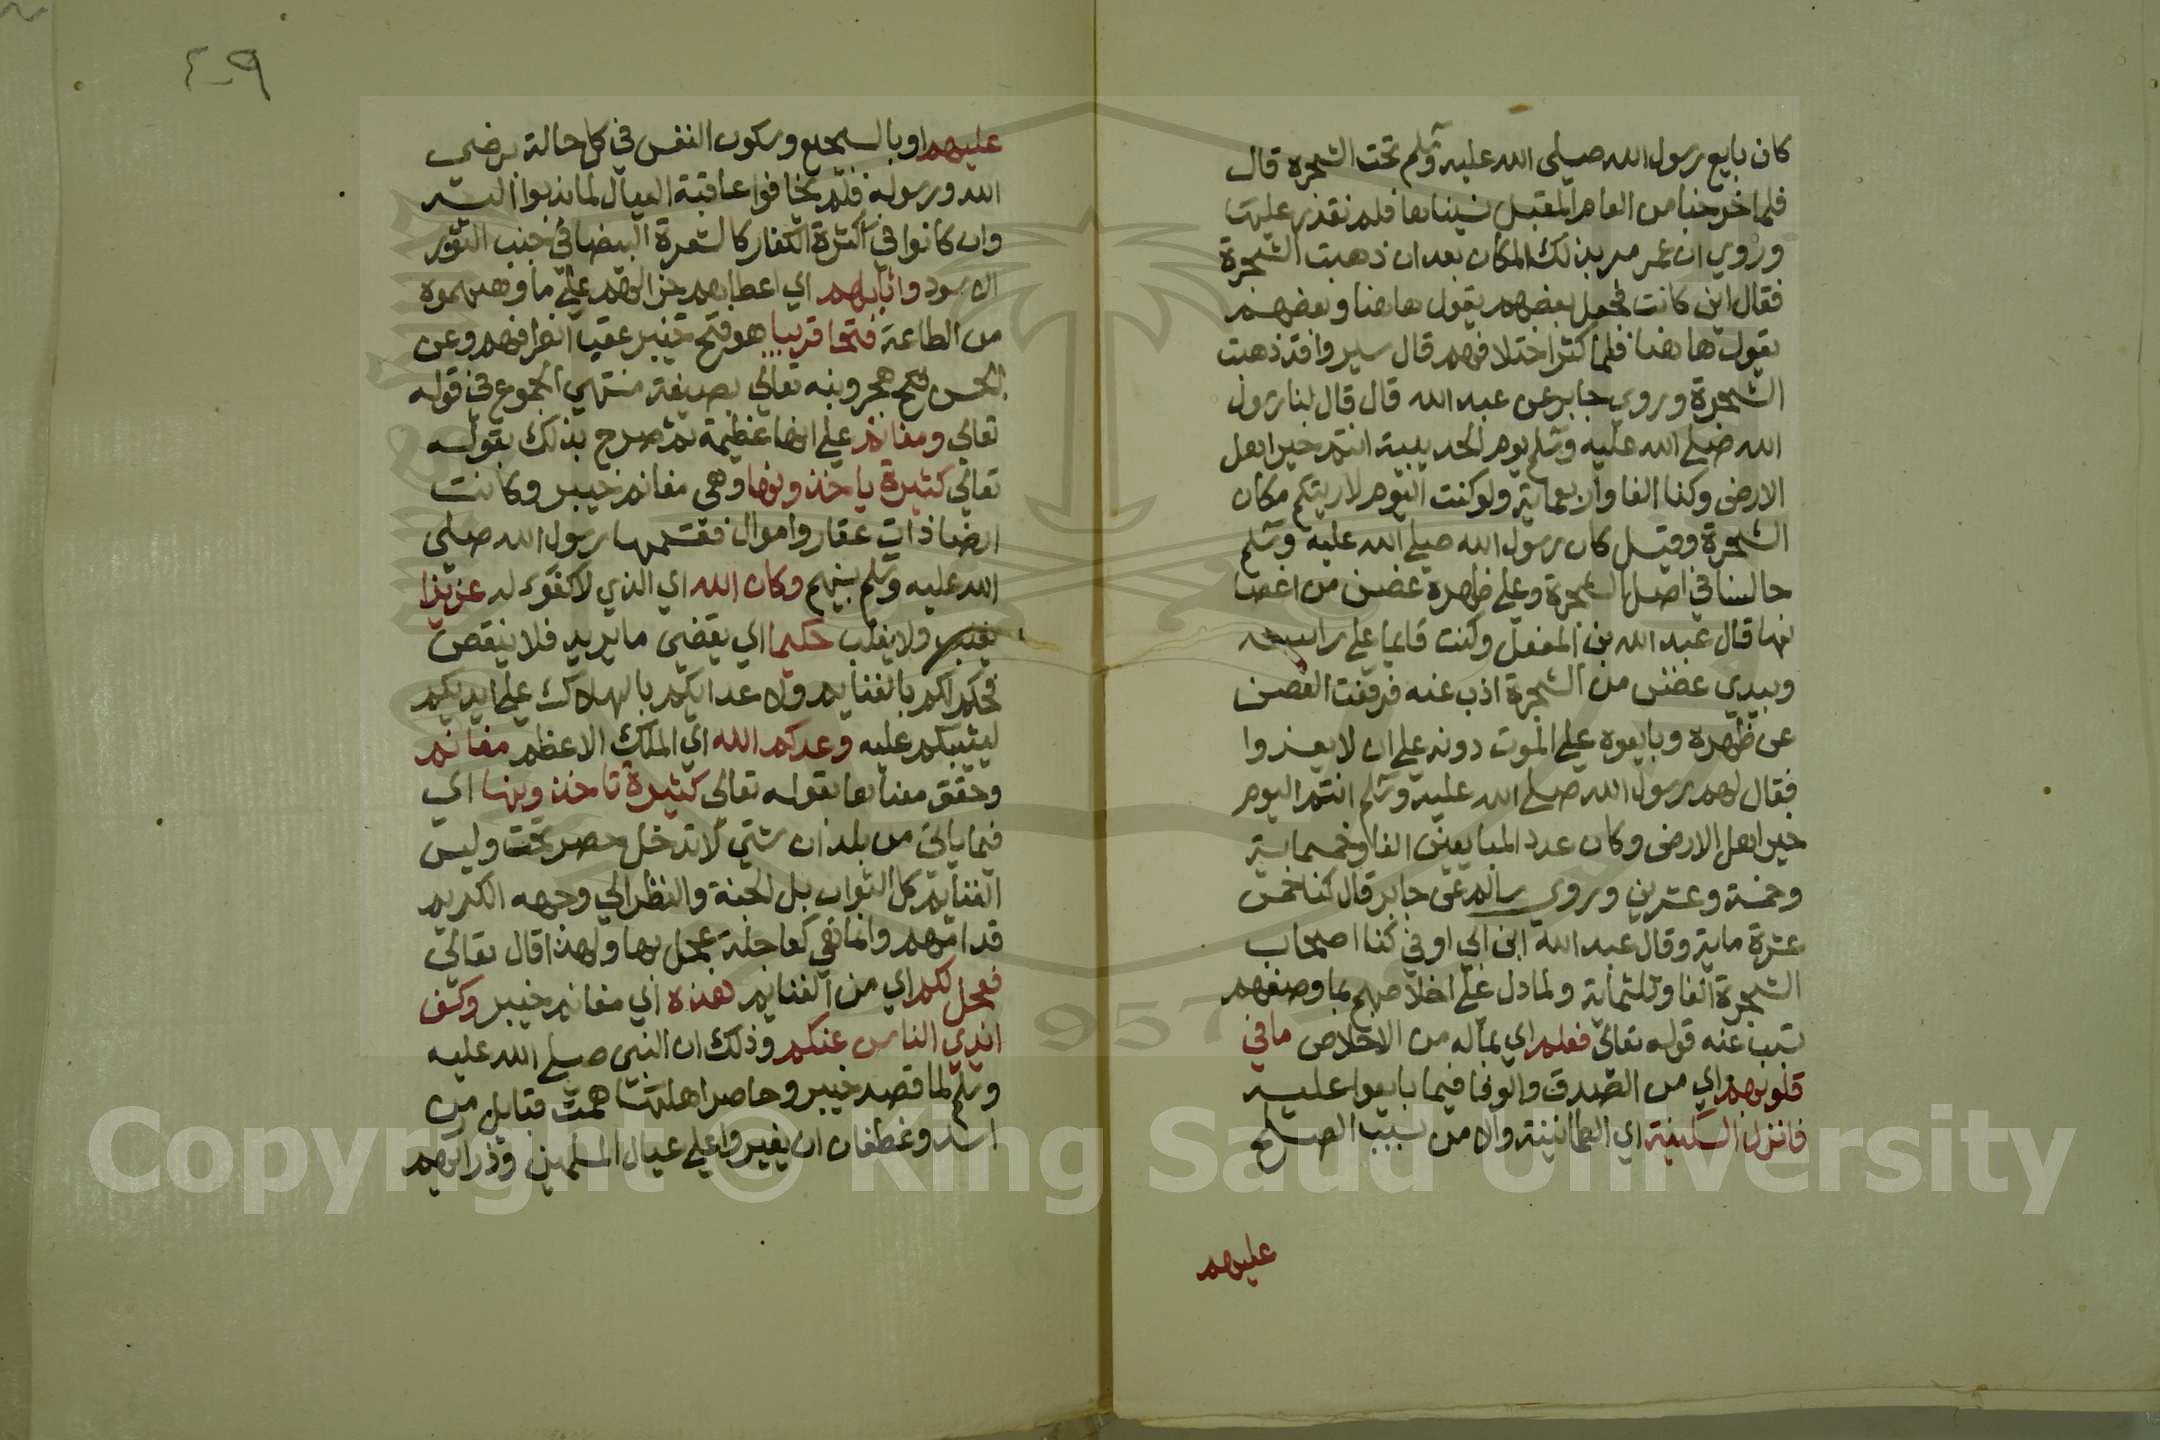 كان بايع رسول الله صلى الله عليه وسلم تحت الشجرة قال
فلما خرجنا من العام المقبل نسيناها فلم نقدر عليها
وروي ان عمر مر بذلك المكان بعد ان ذهبت الشجرة
فقال اين كانت فجعل بعضهم يقول هاهنا وبعضهم
يقول هاهنا فلما كثر اختلافهم قال سيروا قد ذهبت
الشجرة وروي جابر عن عبد الله قال قال لنا رسول
الله صلى الله عليه وسلم يوم الحديبية انتم خير اهل
الارض وكنا الفا واربعماية ولو كنت اليوم لاريتكم مكان
الشجرة وقيل كان رسول الله صلى الله عليه وسلم
جالسا في اصل الشجرة وعلى ظهره غصن من اغصا
نها قال عبد الله بن المغفل وكنت قايما على راسه
وبيدي غصن من الشجرة اذب عنه فرفعت الغصن
عن ظهره وبايعوه على الموت دونه على ان لا يفروا
فقال لهم رسول الله صلى الله عليه وسلم انتم اليوم
خير اهل الارض وكان عدد المبايعين الفا وخمسماية
وخمسة وعشرين وروي سالم عن جابر قال كنا خمس
عشرة ماية وقال عبد الله ابن ابي اوفى كنا اصحاب
الشجرة الفا وثلثماية ولما دل على اخلاصهم بما وصفهم
تسبب عنه قوله تعالى فعلم اي بماله من الاخلاص ما في
قلوبهم اي من الصدق والوفا فيما بايعوا عليه
فانزل السكينة اي الطمانينة والامن بسبب الصلح
عليهم
٤٠٩
عليهم او بالتشجيع وسكون النفس في كل حالة يرضي
الله ورسوله فلم يخافوا عاقبة القتال لما ندبوا اليه
وان كانوا في كثرة الكفار كالشعرة البيضا في جنب الثور
الاسود واثابهم اي اعطاهم جزا لهم على ما وهبهموه
من الطاعة فتحا قريبا هو فتح خيبر عقب انصرافهم وعن
الحسن فتح هجر ونبه تعالى بصيغة منتهى الجموع في قوله
تعالى ومغانم على انها عظيمة ثم صرح بذلك بقوله
تعالى كثيرة ياخذونها وهي مغانم خيبر وكانت
ارضا ذات عقار واموال فقسمها رسول الله صلى
الله عليه وسلم بينهم وكان الله اي الذي لا كفوء له عزيزا
يغلب ولا يغلب حكيما اي يقضي ما يريد فلا ينقض
فحكم لكم بالغنايم ولاعدايكم بالهلاك على ايديكم
ليثيبكم عليه وعدكم الله اي الملك الاعظم مغانم
وحقق معناها بقوله تعالى كثيرة تاخذونها اي
فيما ياتي من بلدان شتى لا تدخل حصر تحت وليس
الغنايم كل الثواب بل الجنة والنظر الى وجهه الكريم
قدامهم وانما هي كعاجلة عجل بها ولهذا قال تعالى
فعجل لكم اي من الغنايم هذه اي مغانم خيبر وكف
ايدي الناس عنكم وذلك ان النبي صلى الله عليه
وسلم لما قصد خيبر وحاصر اهلها همت قبايل من
اسد وغطفان ان يغيروا على عيال المسلمين وذراريهم
Copyright © King Saud University
1957